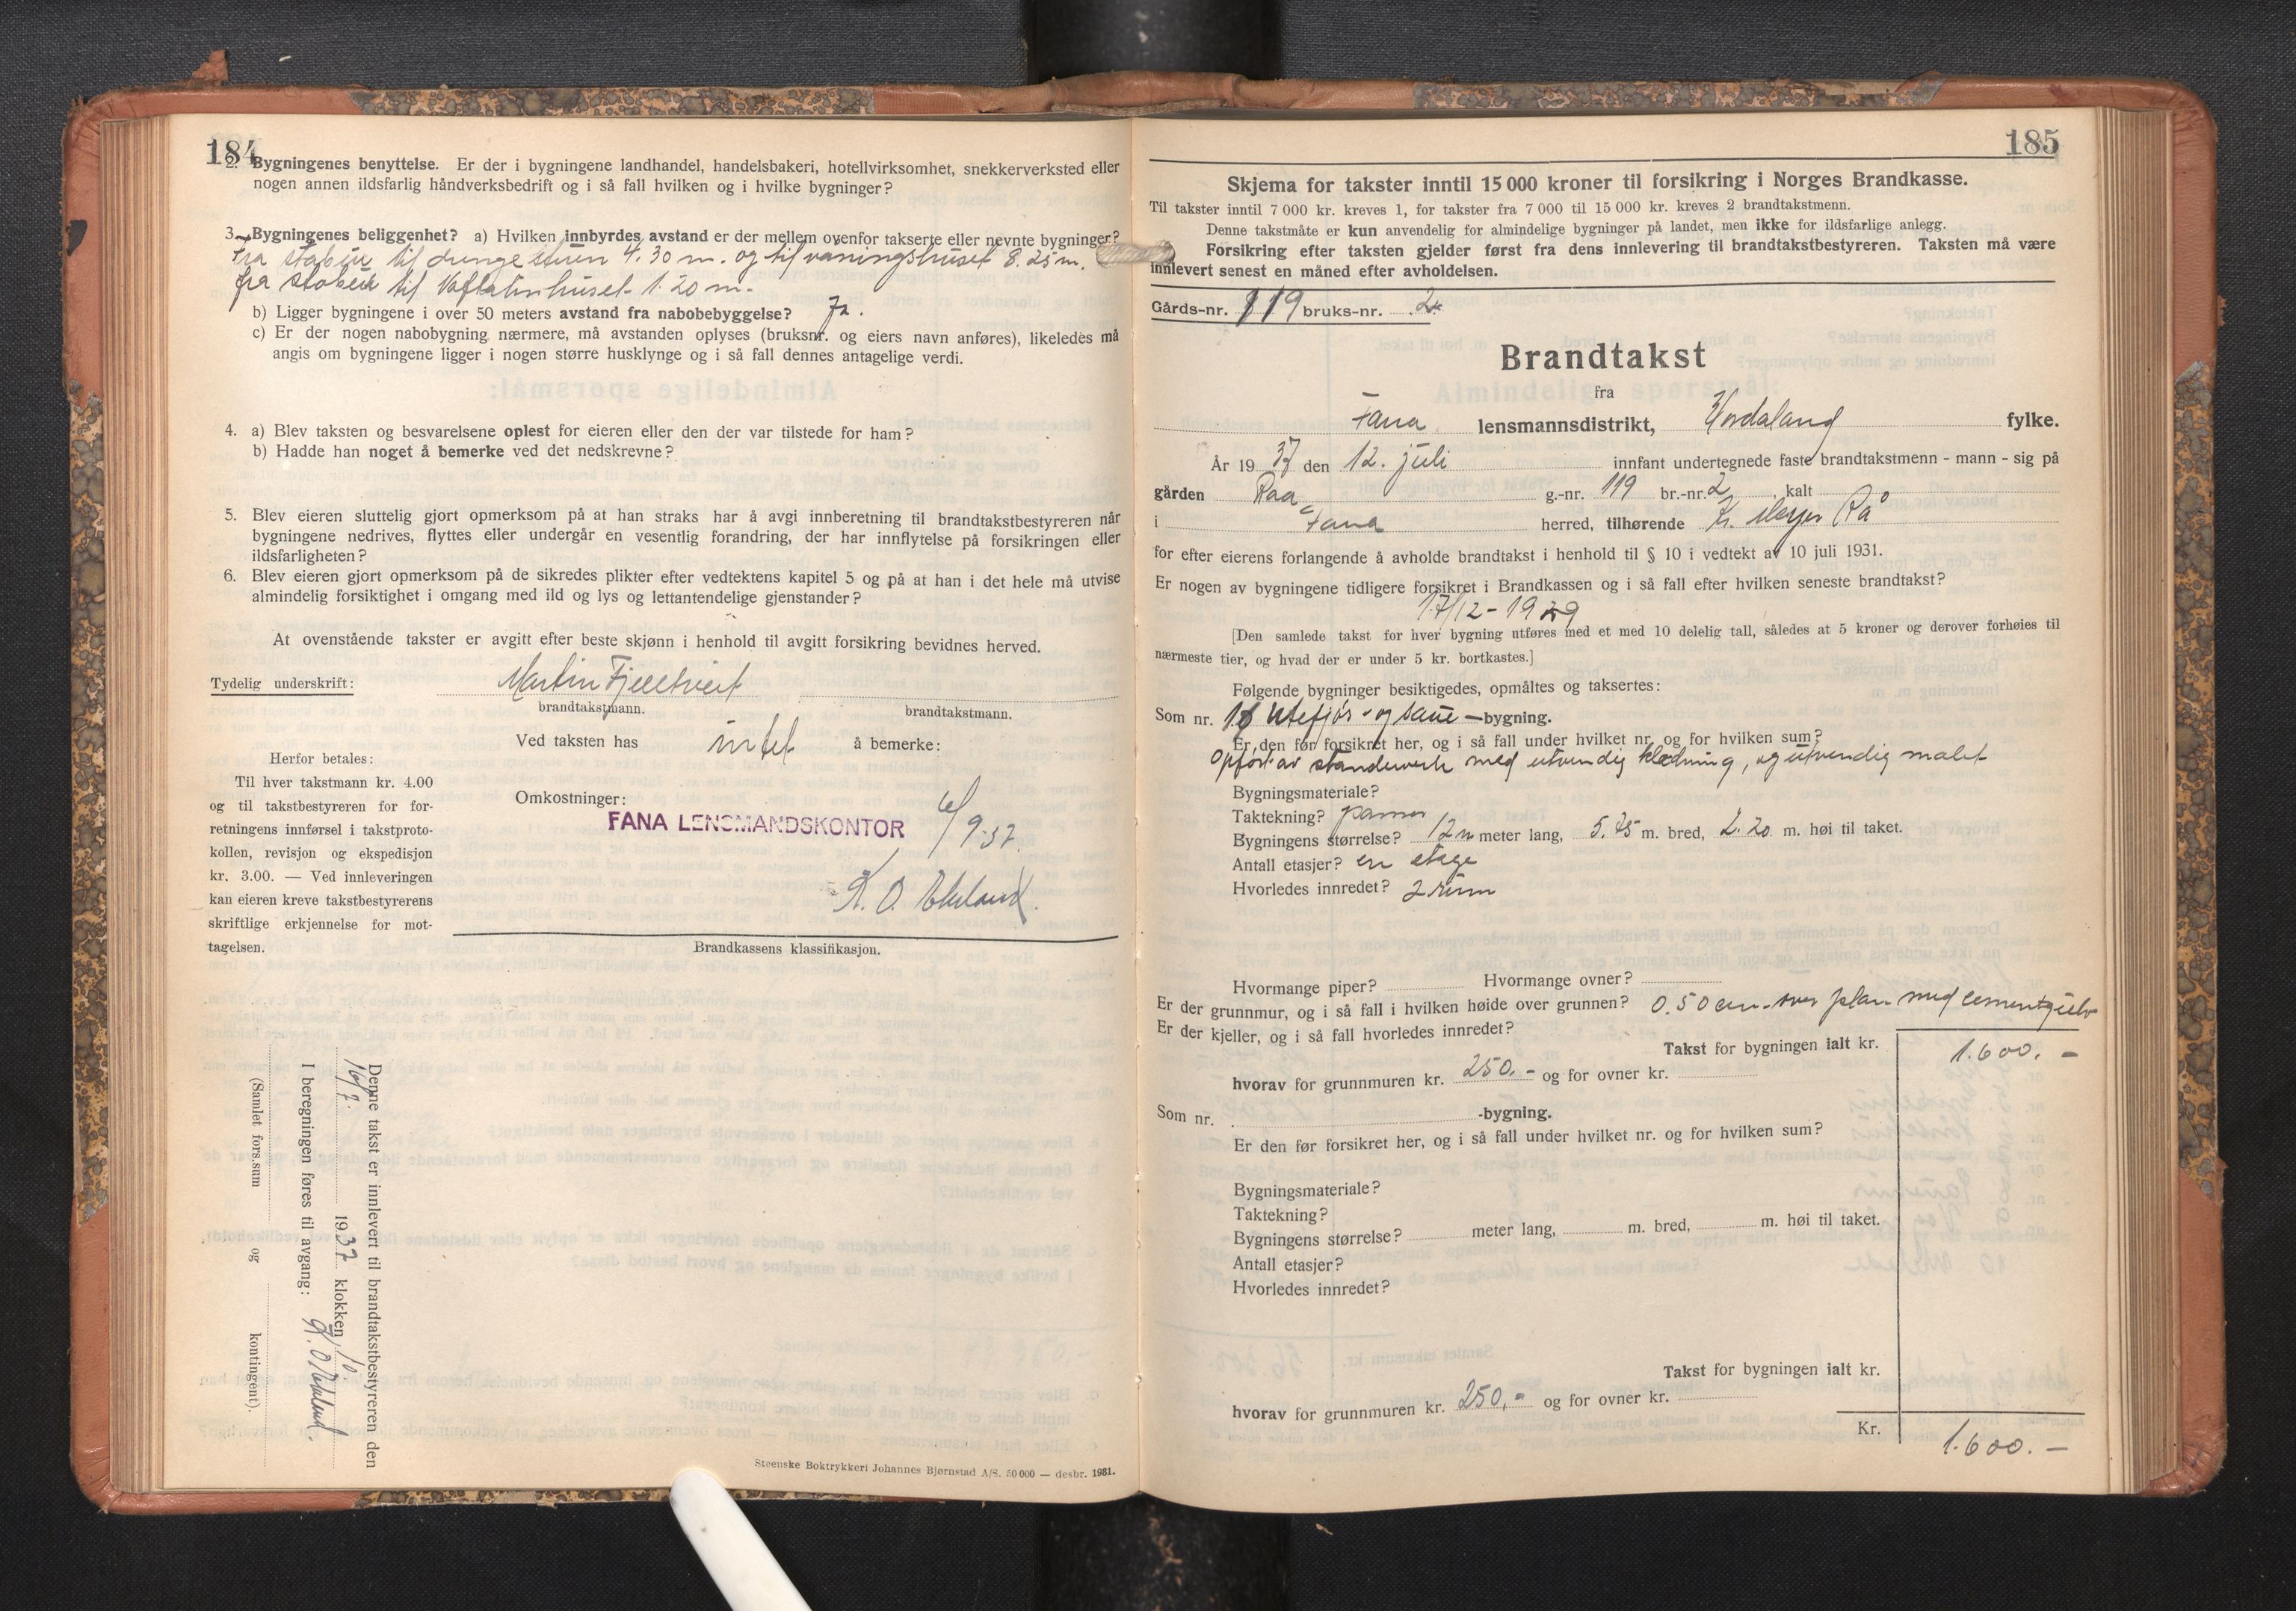 184
2. Bygningenes benyttelse. Er der i bygningene landhandel, handelsbakeri, hotellvirksomhet, snekkerverksted eller
nogen annen ildsfarlig håndverksbedrift og i så fall hvilken og i hvilke bygninger?
3. Bygningenes beliggenhet? a) Hvilken innbyrdes avstand er der mellem ovenfor takserte eller nevnte bygninger?
Fra stabur til 4.30 m. og til våningshuset 8.25 m.
fra stabur til 1.20 m.
b) Ligger bygningene i over 50 meters avstand fra nabobebyggelse? Ja.
c) Er der nogen nabobygning nærmere, må avstanden oplyses (bruksnr. og eiers navn anføres), likeledes må
angis om bygningene ligger i nogen større husklynge og i så fall dennes antagelige verdi.
4. a) Blev taksten og besvarelsene oplest for eieren eller den der var tilstede for ham?
b) Hadde han noget å bemerke ved det nedskrevne?
5. Blev eieren sluttelig gjort opmerksom på at han straks har å avgi innberetning til brandtakstbestyreren når
bygningene nedrives, flyttes eller undergår en vesentlig forandring, der har innflytelse på forsikringen eller
ildsfarligheten?
6. Blev eieren gjort opmerksom på de sikredes plikter efter vedtektens kapitel 5 og på at han i det hele må utvise
almindelig forsiktighet i omgang med ild og lys og lettantendelige gjenstander?
At ovenstående takster er avgitt efter beste skjønn i henhold til avgitt forsikring bevidnes herved.
Tydelig underskrift: Martin Fjeldtveit
brandtakstmann. brandtakstmann.
Ved taksten has intet å bemerke:
Herfor betales:
Til hver takstmann kr. 4.00
og til takstbestyreren for for-
retningens innførsel i takstproto-
kollen, revisjon og ekspedisjon
kr. 3.00. — Ved innleveringen
kan eieren kreve takstbestyrerens
skriftlige erkjennelse for mot-
tagelsen.
Omkostninger:
FANA LENSMANDSKONTOR 6/9-37.
Brandkassens klassifikasjon.
Denne takst er innlevert til brandtakstbestyreren den
16/7. 1937 klokken 10
I beregningen føres til avgang:
(Samlet fors.sum og kontingent).
Steenske Boktrykkeri Johannes Bjørnstad A/S. 50 000 — desbr. 1931.
185
Skjema for takster inntil 15 000 kroner til forsikring i Norges Brandkasse.
Til takster inntil 7 000 kr. kreves 1, for takster fra 7 000 til 15 000 kr. kreves 2 brandtakstmenn.
Denne takstmåte er kun anvendelig for almindelige bygninger på landet, men ikke for ildsfarlige anlegg.
Forsikring efter taksten gjelder først fra dens innlevering til brandtakstbestyreren. Taksten må være
innlevert senest en måned efter avholdelsen.
Gårds-nr. 119 bruks-nr. 2
Brandtakst
fra
Fana lensmannsdistrikt, Hordaland fylke.
År 1937 den 12. juli innfant undertegnede faste brandtakstmenn - mann - sig på
gården Raa g.-nr. 119 br.-nr. 2 kalt
i Fana herred, tilhørende K. Rå
for efter eierens forlangende å avholde brandtakst i henhold til § 10 i vedtekt av 10 juli 1931.
Er nogen av bygningene tidligere forsikret i Brandkassen og i så fall efter hvilken seneste brandtakst?
17/12-1929
[Den samlede takst for hver bygning utføres med et med 10 delelig tall, således at 5 kroner og derover forhøies til
nærmeste tier, og hvad der er under 5 kr. bortkastes.]
Følgende bygninger besiktigedes, opmåltes og taksertes:
Som nr. Utefjøs- og saue-bygning.
Er den før forsikret her, og i så fall under hvilket nr. og for hvilken sum?
Opført av standerverk med utvendig kledning, og utvendig malet
Bygningsmateriale?
Taktekning? panner
Bygningens størrelse? 12 m meter lang, 5.75 m. bred, 2.20 m. høi til taket.
Antall etasjer? en etage
Hvorledes innredet? 2 rum
Hvormange piper? Hvormange ovner?
Er der grunnmur, og i så fall i hvilken høide over grunnen? 0.50 cm. over plan med cementgulv
Er der kjeller, og i så fall hvorledes innredet?
Takst for bygningen ialt kr. 1.600.-
hvorav for grunnmuren kr. 250.- og for ovner kr.
Som nr. -bygning.
Er den før forsikret her, og i så fall under hvilket nr. og for hvilken sum?
Bygningsmateriale?
Taktekning?
Bygningens størrelse? meter lang, m. bred, m. høi til taket.
Antall etasjer?
Hvorledes innredet?
Takst for bygningen ialt kr.
hvorav for grunnmuren kr. 250,- og for ovner kr.
Kr. 1.600.-